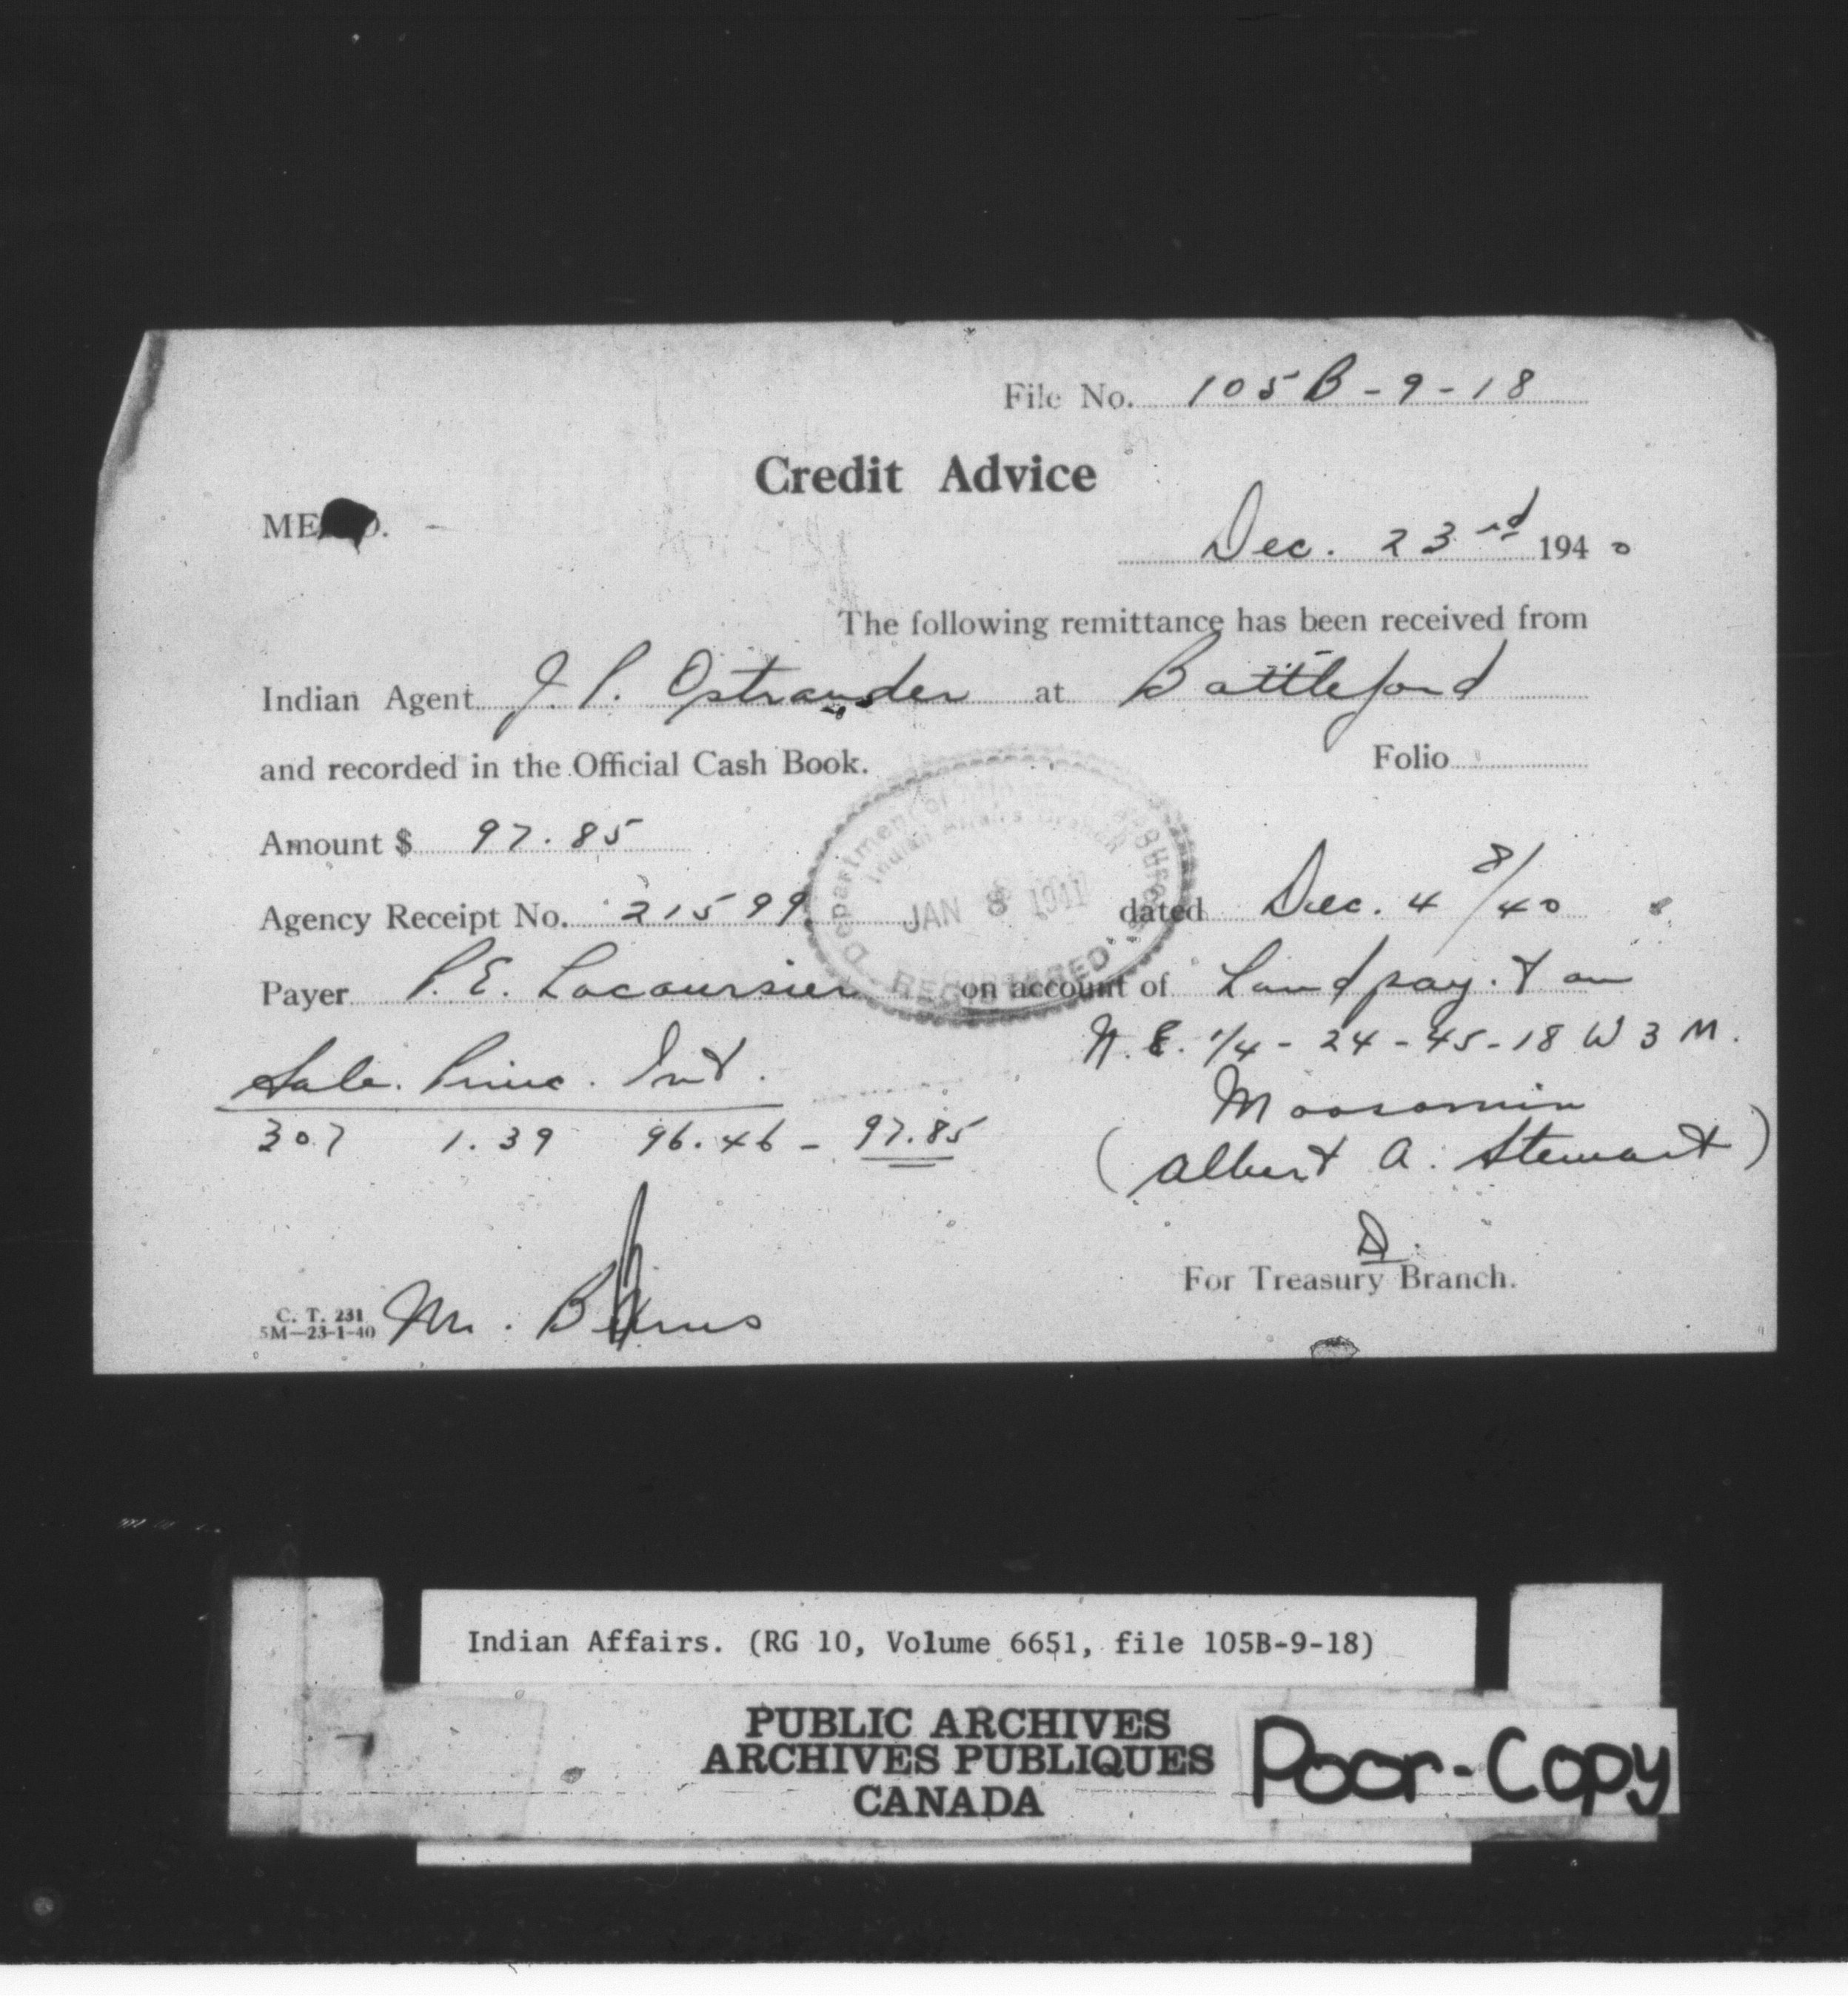 File No. 105B-9-18
Credit Advice
MEMO.
Dec. 23rd 1940
The following remittance has been received from
Indian Agent J. P. Ostrander at Battleford
and recorded in the Official Cash Book. Folio
Amount $ 97.85
Department of Mines & Resources
Indian Affairs Branch
JAN 8 1941
REGISTERED
Agency Receipt No. 21599 dated Dec. 4 8/40
Payer P. E. Lacoursier on account of Land pay.t on
N.E. 1/4 - 24 - 45 - 18 W 3 M.
Sale. Princ. Int.
Moosomin
307 1.39 96.46 - 97.85
(Albert A. Stewart)
D.
For Treasury Branch.
C. T. 231
5M—23-1-40
Mr.
Indian Affairs. (RG 10, Volume 6651, file 105B-9-18)
PUBLIC ARCHIVES
ARCHIVES PUBLIQUES
CANADA
Poor-Copy